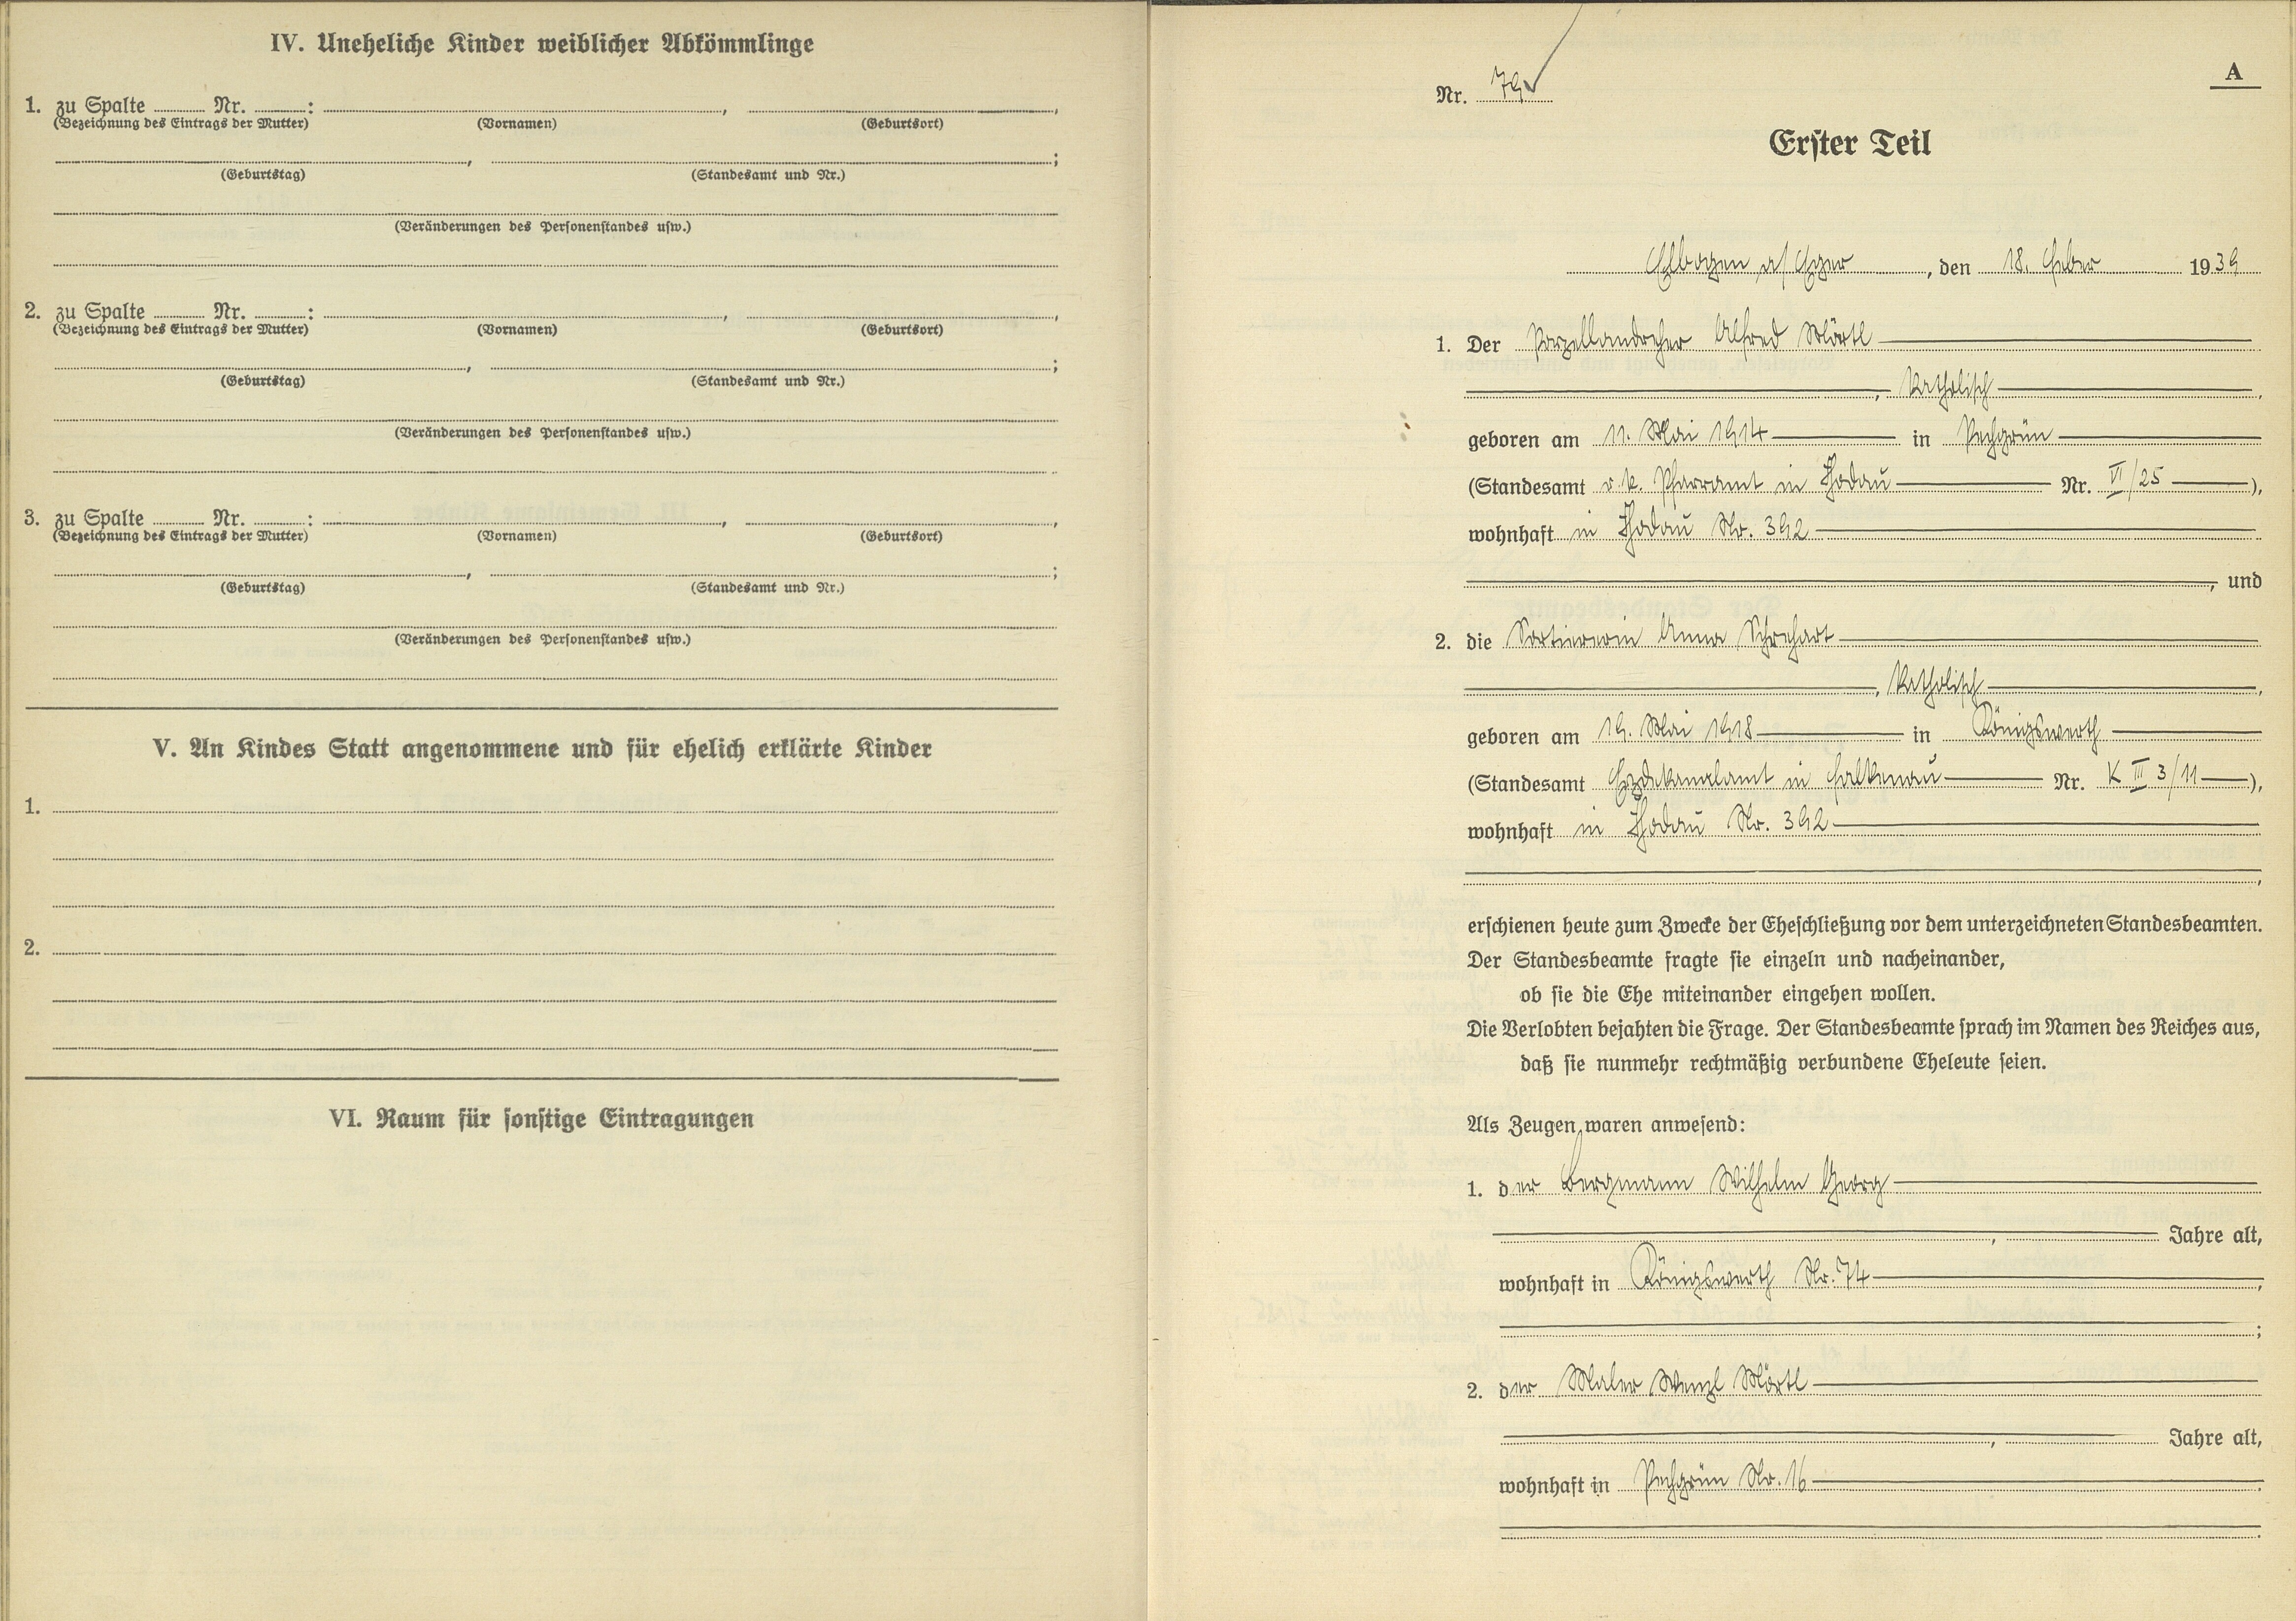 IV. Uneheliche Kinder weiblicher Abkömmlinge
1. zu Spalte ........ Nr. ........:
(Bezeichnung des Eintrags der Mutter) (Vornamen) (Geburtsort)
(Geburtstag) (Standesamt und Nr.)
(Veränderungen des Personenstandes usw.)
2. zu Spalte ........ Nr. ........:
(Bezeichnung des Eintrags der Mutter) (Vornamen) (Geburtsort)
(Geburtstag) (Standesamt und Nr.)
(Veränderungen des Personenstandes usw.)
3. zu Spalte ........ Nr. ........:
(Bezeichnung des Eintrags der Mutter) (Vornamen) (Geburtsort)
(Geburtstag) (Standesamt und Nr.)
(Veränderungen des Personenstandes usw.)
V. An Kindes Statt angenommene und für ehelich erklärte Kinder
1.
2.
VI. Raum für sonstige Eintragungen
A
Nr. 79
Erster Teil
Elbogen a/Eger, den 18. Feber 1939
1. Der Porzellandreher Alfred Mörtl
, katholisch,
geboren am 11. Mai 1914 in Pechgrün
(Standesamt r. k. Pfarramt in Chodau Nr. VI/25),
wohnhaft in Chodau Nr. 392
, und
2. die Sortiererin Anna Schrehart
, katholisch,
geboren am 19. Mai 1918 in Königswerth
(Standesamt Erzdekanalamt in Falkenau Nr. K III 3/11),
wohnhaft in Chodau Nr. 392
,
erschienen heute zum Zwecke der Eheschließung vor dem unterzeichneten Standesbeamten.
Der Standesbeamte fragte sie einzeln und nacheinander,
ob sie die Ehe miteinander eingehen wollen.
Die Verlobten bejahten die Frage. Der Standesbeamte sprach im Namen des Reiches aus,
daß sie nunmehr rechtmäßig verbundene Eheleute seien.
Als Zeugen waren anwesend:
1. der Bergmann Wilhelm Georg
, Jahre alt,
wohnhaft in Königswerth Nr. 74,
;
2. der Maler Wenzl Mörtl
, Jahre alt,
wohnhaft in Pechgrün Nr. 16
.